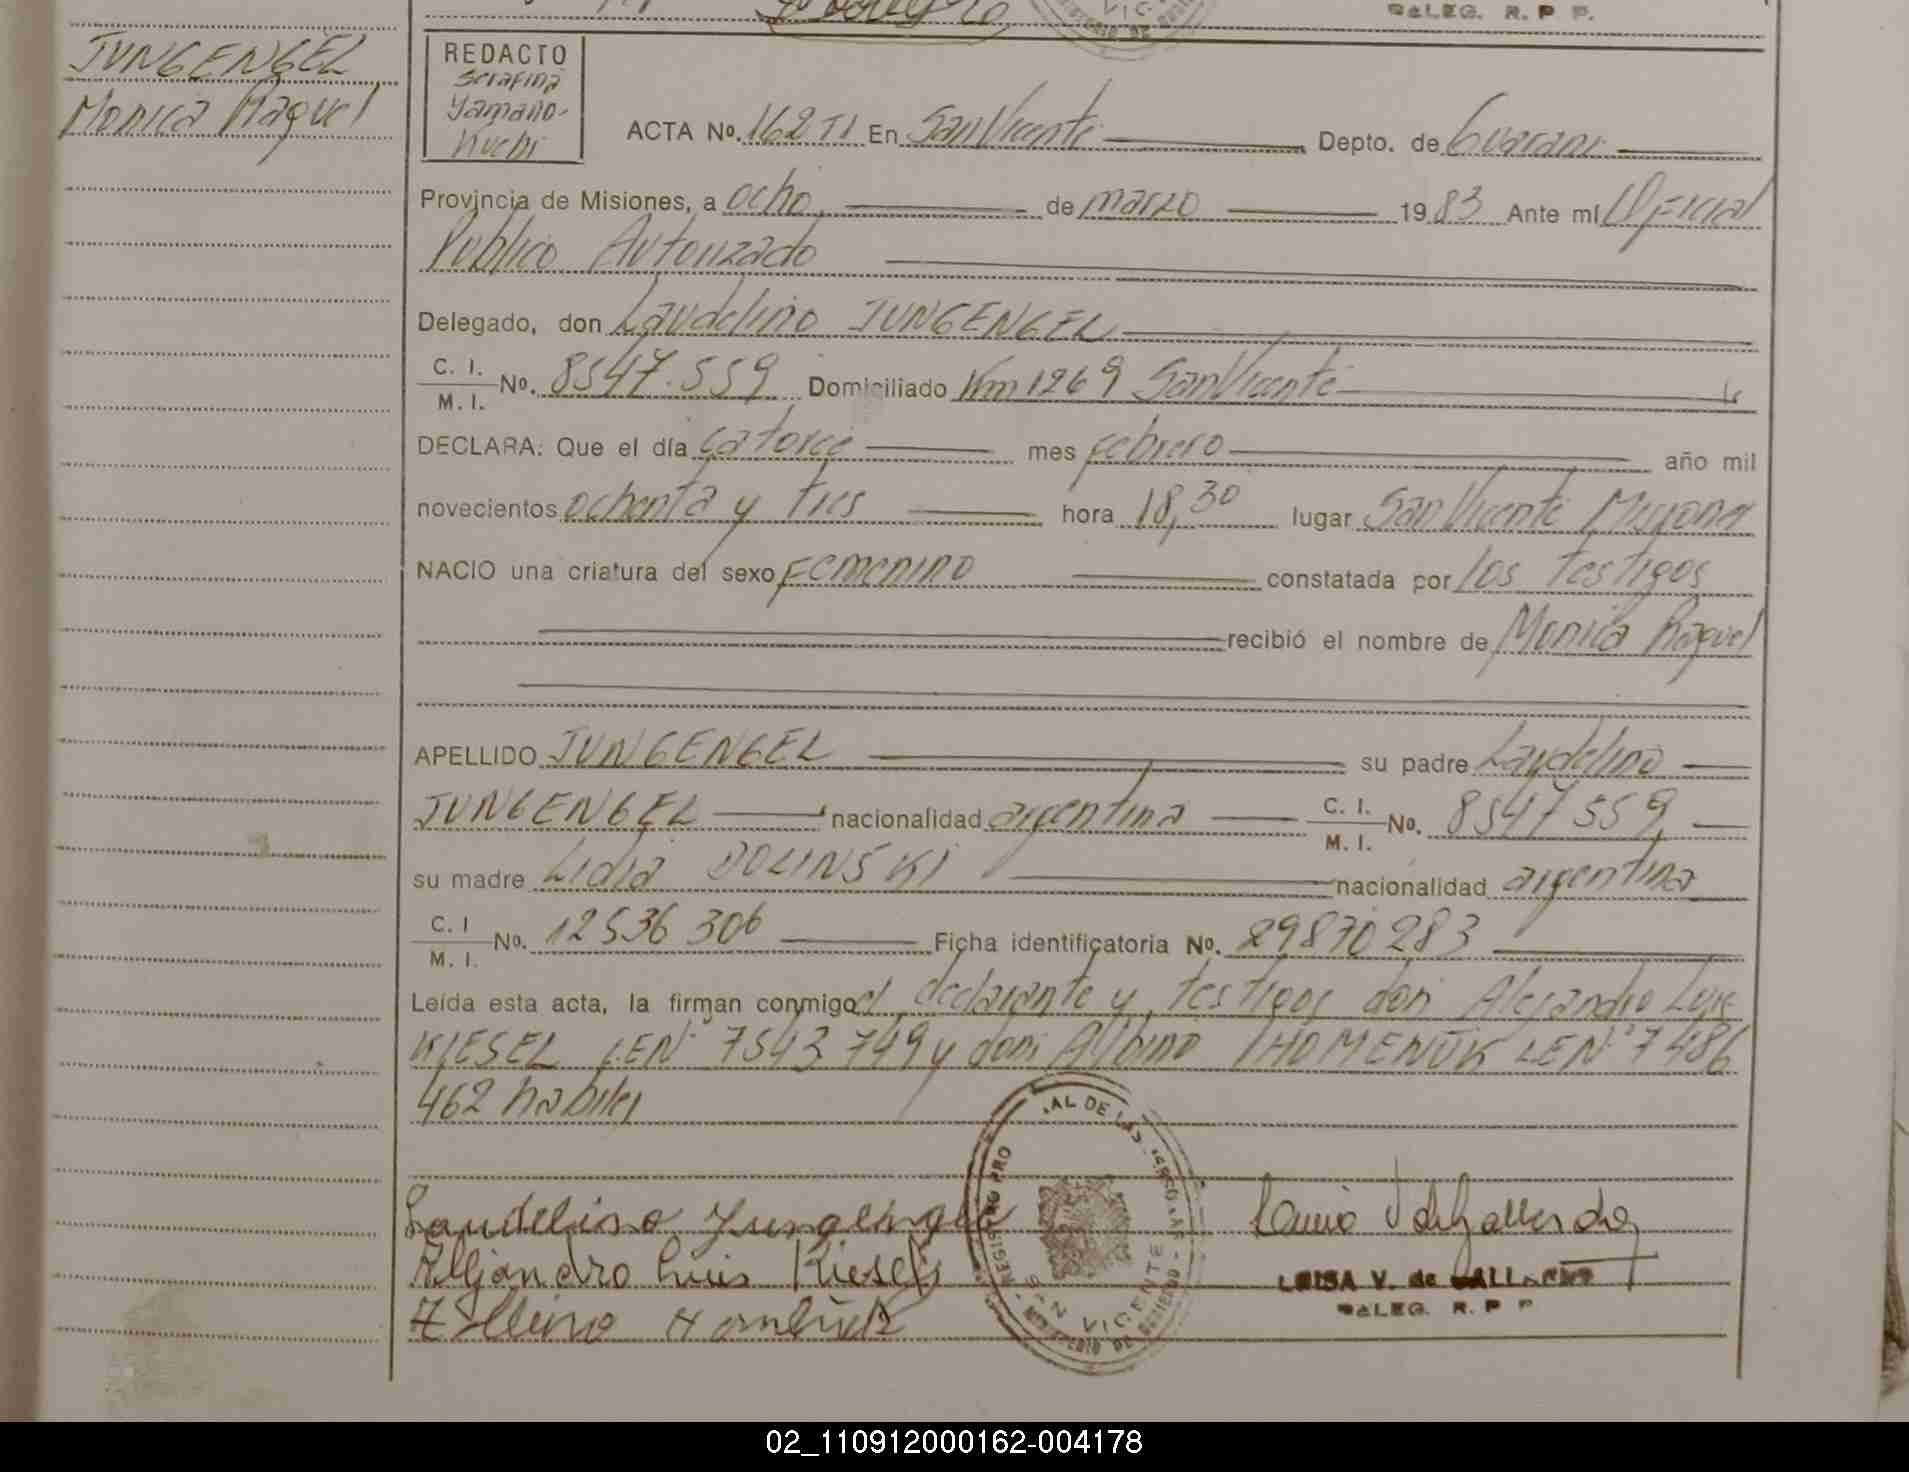 DELEG. R. P. P.
JUNGENGEL
Monica Raquel
REDACTO
Serafina
Yamano-
Kuchi
ACTA No. 162 TI En San Vicente Depto. de Guarani
Provincia de Misiones, a ocho de marzo 1983 Ante mi Oficial
Publico Autorizado
Delegado, don Laudelino JUNGENGEL
C. I.
M. I. No. 8547.559 Domiciliado Km 1269 San Vicente
DECLARA: Que el día catorce mes febrero año mil
novecientos ochenta y tres hora 18,30 lugar San Vicente Misiones
NACIO una criatura del sexo Femenino constatada por los testigos
recibió el nombre de Monica Raquel
APELLIDO JUNGENGEL su padre Laudelino
JUNGENGEL nacionalidad argentina C. I. M. I. No. 8547559
su madre Lidia DOLINSKI nacionalidad argentina
C. I M. I. No. 12536306 Ficha identificatoria No. 29870283
Leída esta acta, la firman conmigo el declarante y testigos don Alejandro Luis
KIESEL LEN° 7543749 y don Albino HOMENIUK LEN° 7486
462 habiles
Laudelino Jungengel
Alejandro Luis Kiesel
SAN VICENTE
LUISA V. de GALLARDO
DELEG. R. P. P.
02_110912000162-004178